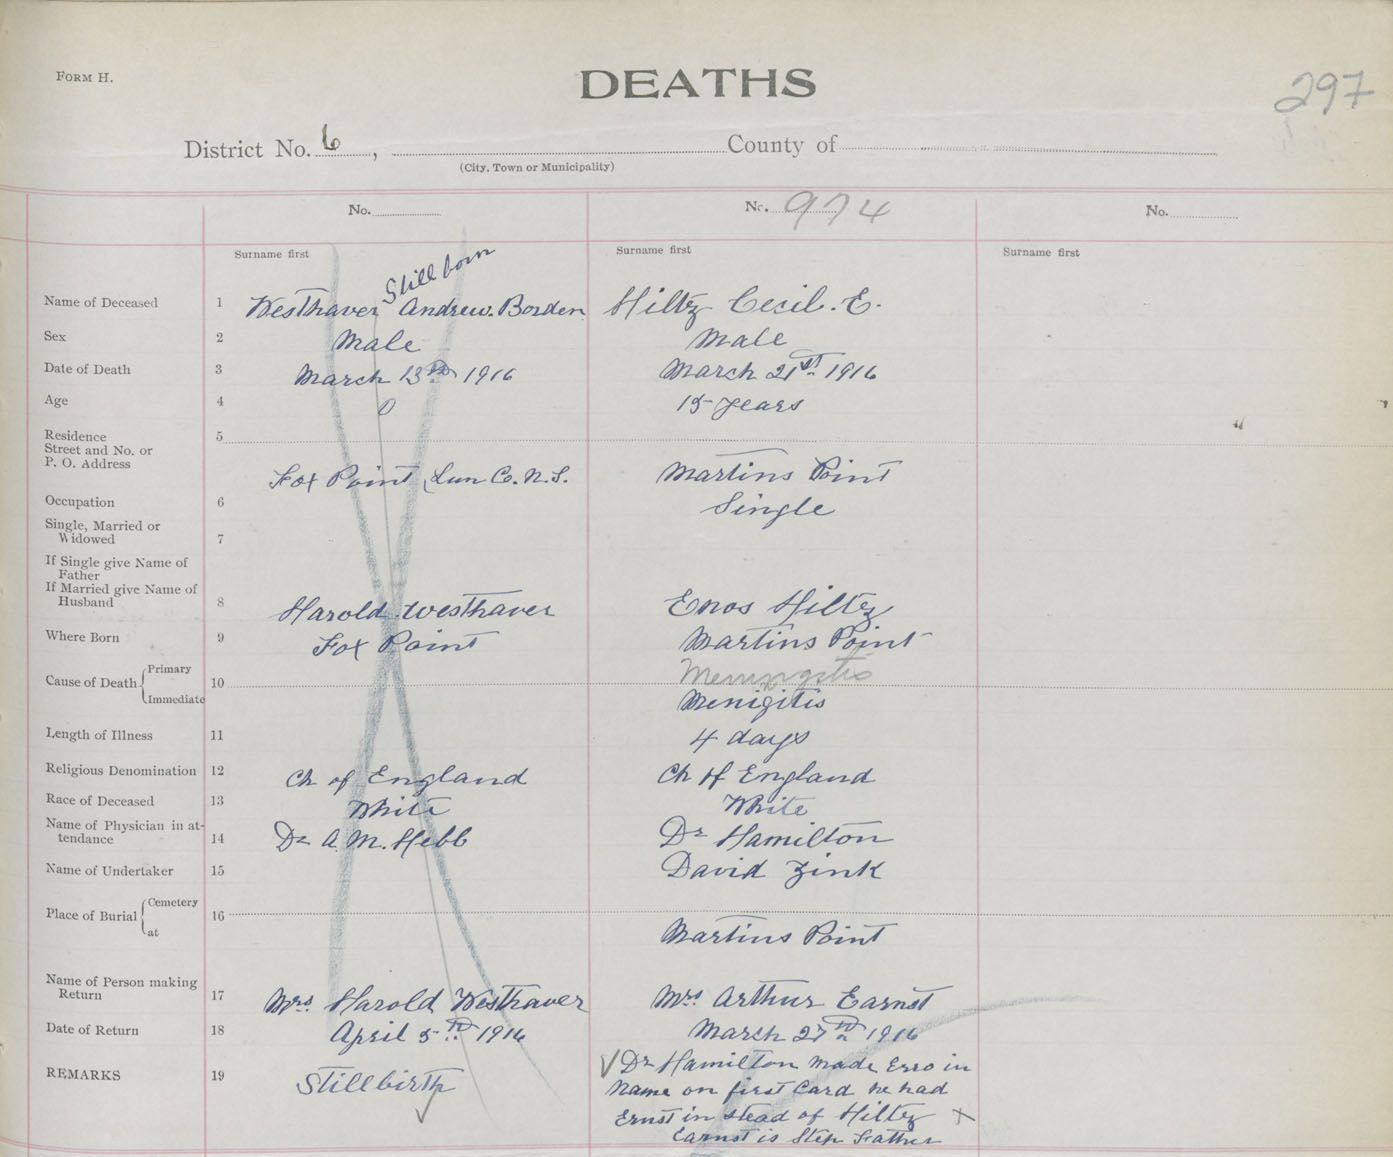 FORM H.
DEATHS
297
District No. 6, County of
(City, Town or Municipality)
No. No. 974 No.
Surname first Surname first Surname first
Stillborn
Name of Deceased 1 Westhaver Andrew. Borden Hiltz Cecil. E.
Sex 2 Male Male
Date of Death 3 March 13th 1916 March 21st 1916
Age 4 0 15 years
Residence 5
Street and No. or
P. O. Address Fox Point, Lun Co. N.S. Martins Point
Occupation 6 Single
Single, Married or
Widowed 7
If Single give Name of
Father
If Married give Name of
Husband 8 Harold Westhaver Enos Hiltz
Where Born 9 Fox Point Martins Point
Cause of Death Primary 10 Meningitis
Immediate Menigitis
Length of Illness 11 4 days
Religious Denomination 12 Ch of England Ch of England
Race of Deceased 13 White White
Name of Physician in at-
tendance 14 Dr A. M. Hebb Dr Hamilton
Name of Undertaker 15 David Zink
Place of Burial Cemetery 16
at Martins Point
Name of Person making
Return 17 Mrs Harold Westhaver Mrs Arthur Earnst
Date of Return 18 April 5th 1916 March 27th 1916
REMARKS 19 Stillbirth Dr Hamilton made Erro in
Name on first Card he had
Ernst in stead of Hiltz
Earnst is Step Father